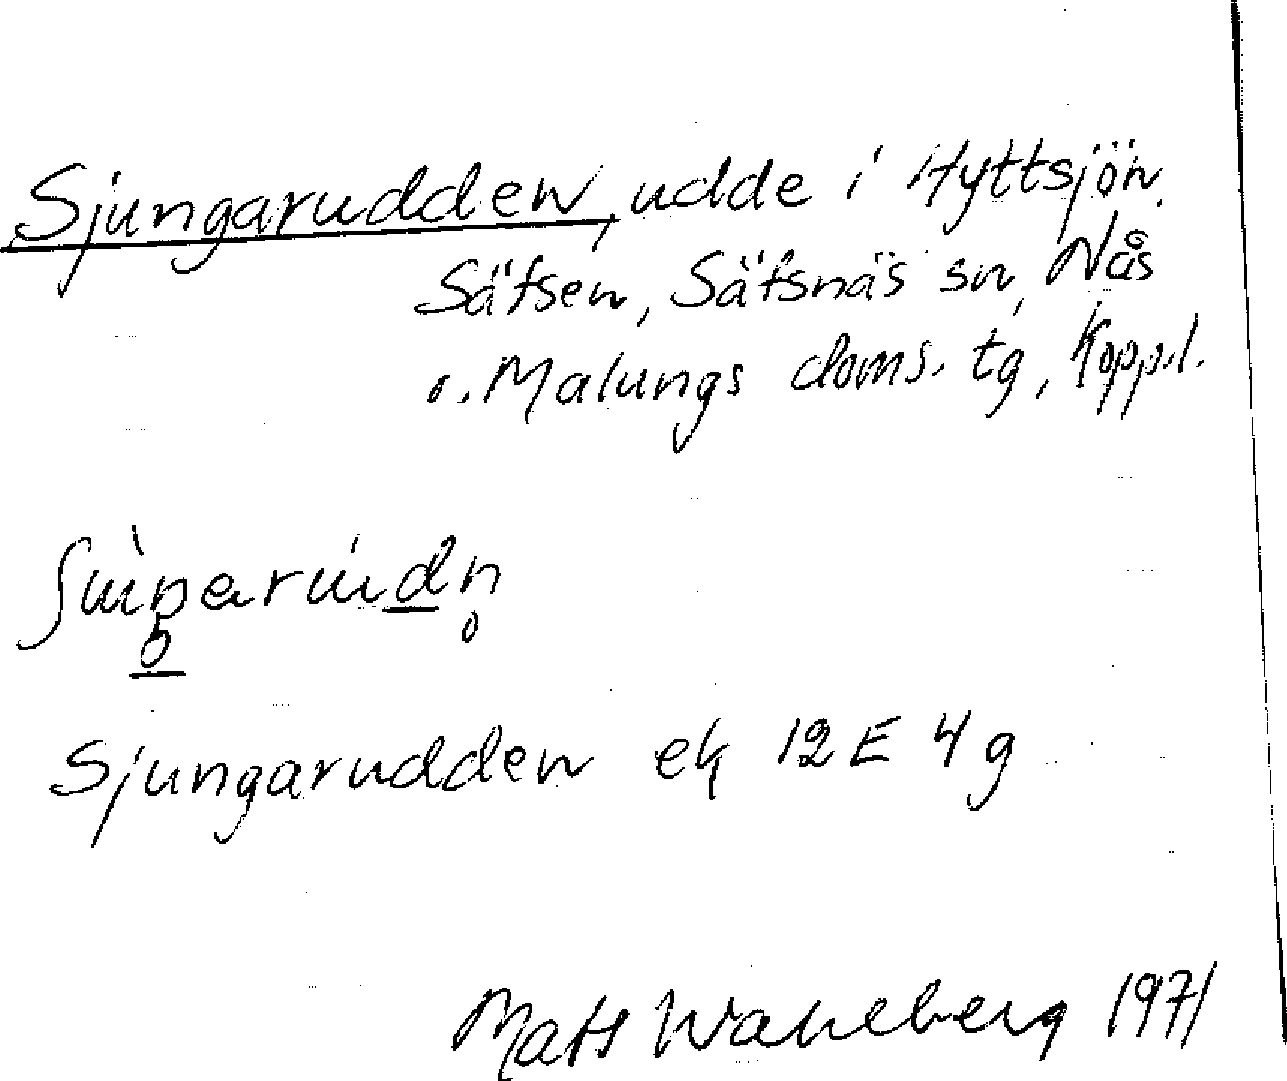 Sjungarudden, udde i Hyttsjön.
Säfsen, Säfsnäs sn, Nås
o. Malungs doms. tg, Kopp.l.
Sjungarudden ek 12E 4g
Mats Wahlberg 1971